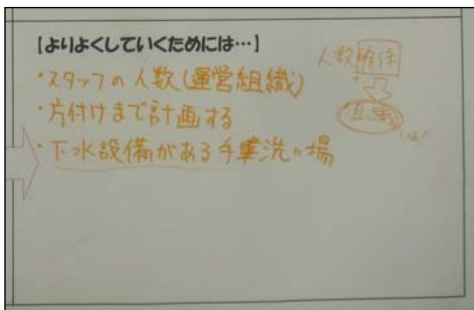 【よりよくしていくためには…】
・スタッフの人数(運営組織)
・片付けまで計画する
・下水設備がある手洗い場
人数確保